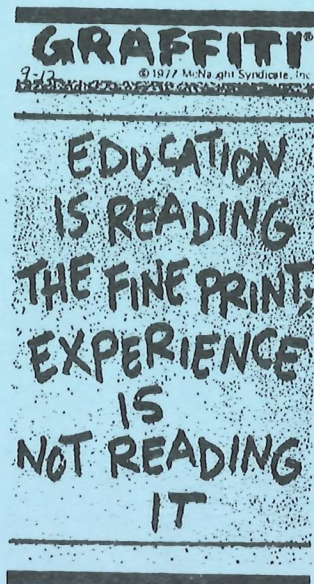 GRAFFITI®
9-12 © 1977 McNaught Syndicate, Inc
EDUCATION
IS READING
THE FINE PRINT;
EXPERIENCE
IS
NOT READING
IT